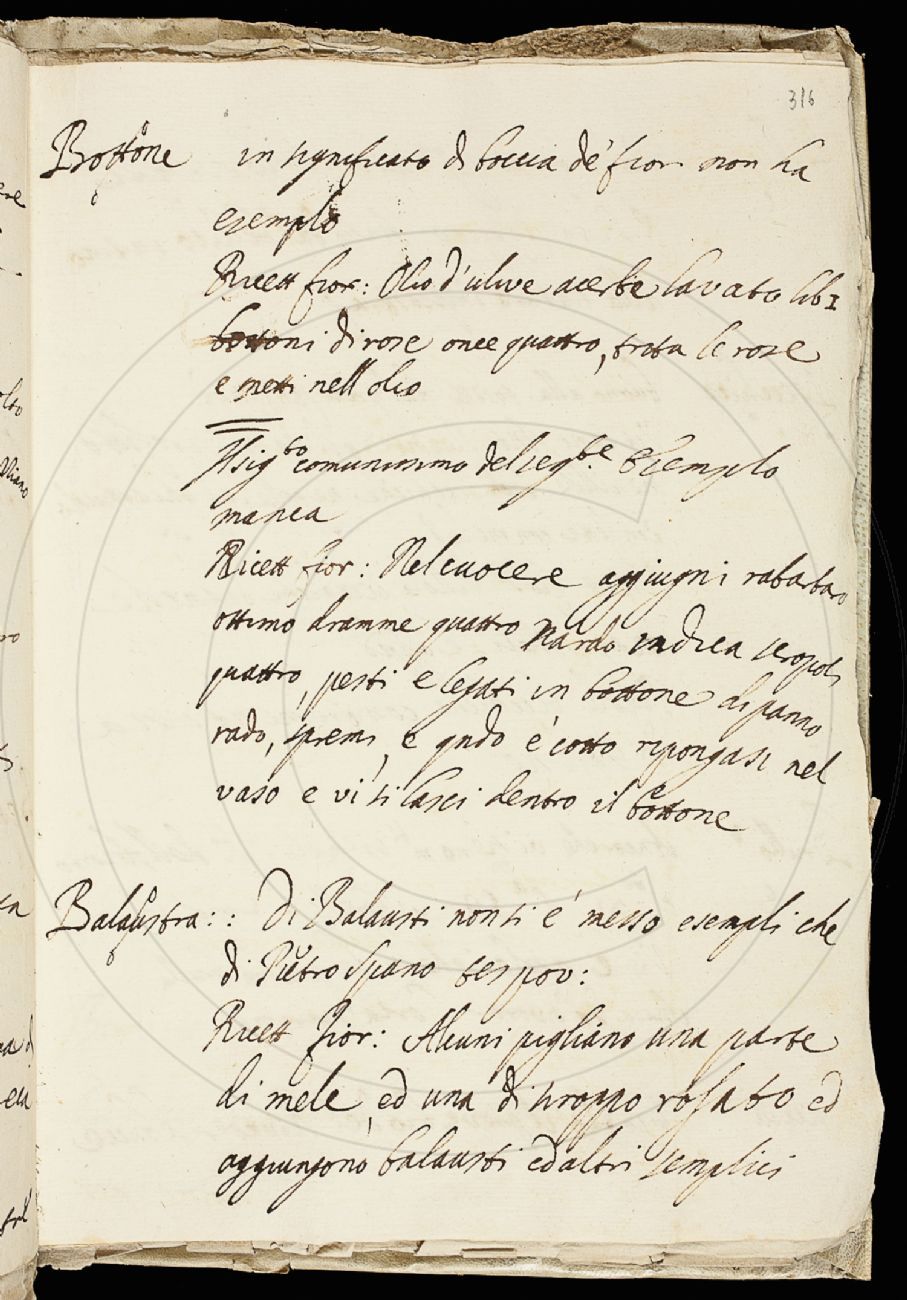 316
Bottone in significato di boccia de' fior non ha
esempio
Ricett fior: Olio d'ulive acerbe lavato lib 1
bottoni di rose once quattro, trita le rose
e metti nell'olio
sig.to comunissimo del seg.te Esemplo
manca
Ricett fior: Nel cuocere aggiugni rabarbaro
ottimo dramme quattro Nardo indica scropoli
quattro, pesti e legati in bottone di panno
rado, spremi, e qndo è cotto ripongasi nel
vaso e vi si lasci dentro il bottone
Balaustra:: Di Balausti non si è messo esempli che
di Pietro Spano tes pov:
Ricett Fior: Alcuni pigliano una parte
di mele, ed una di siroppo rosato ed
aggiungono balausti ed altri semplici